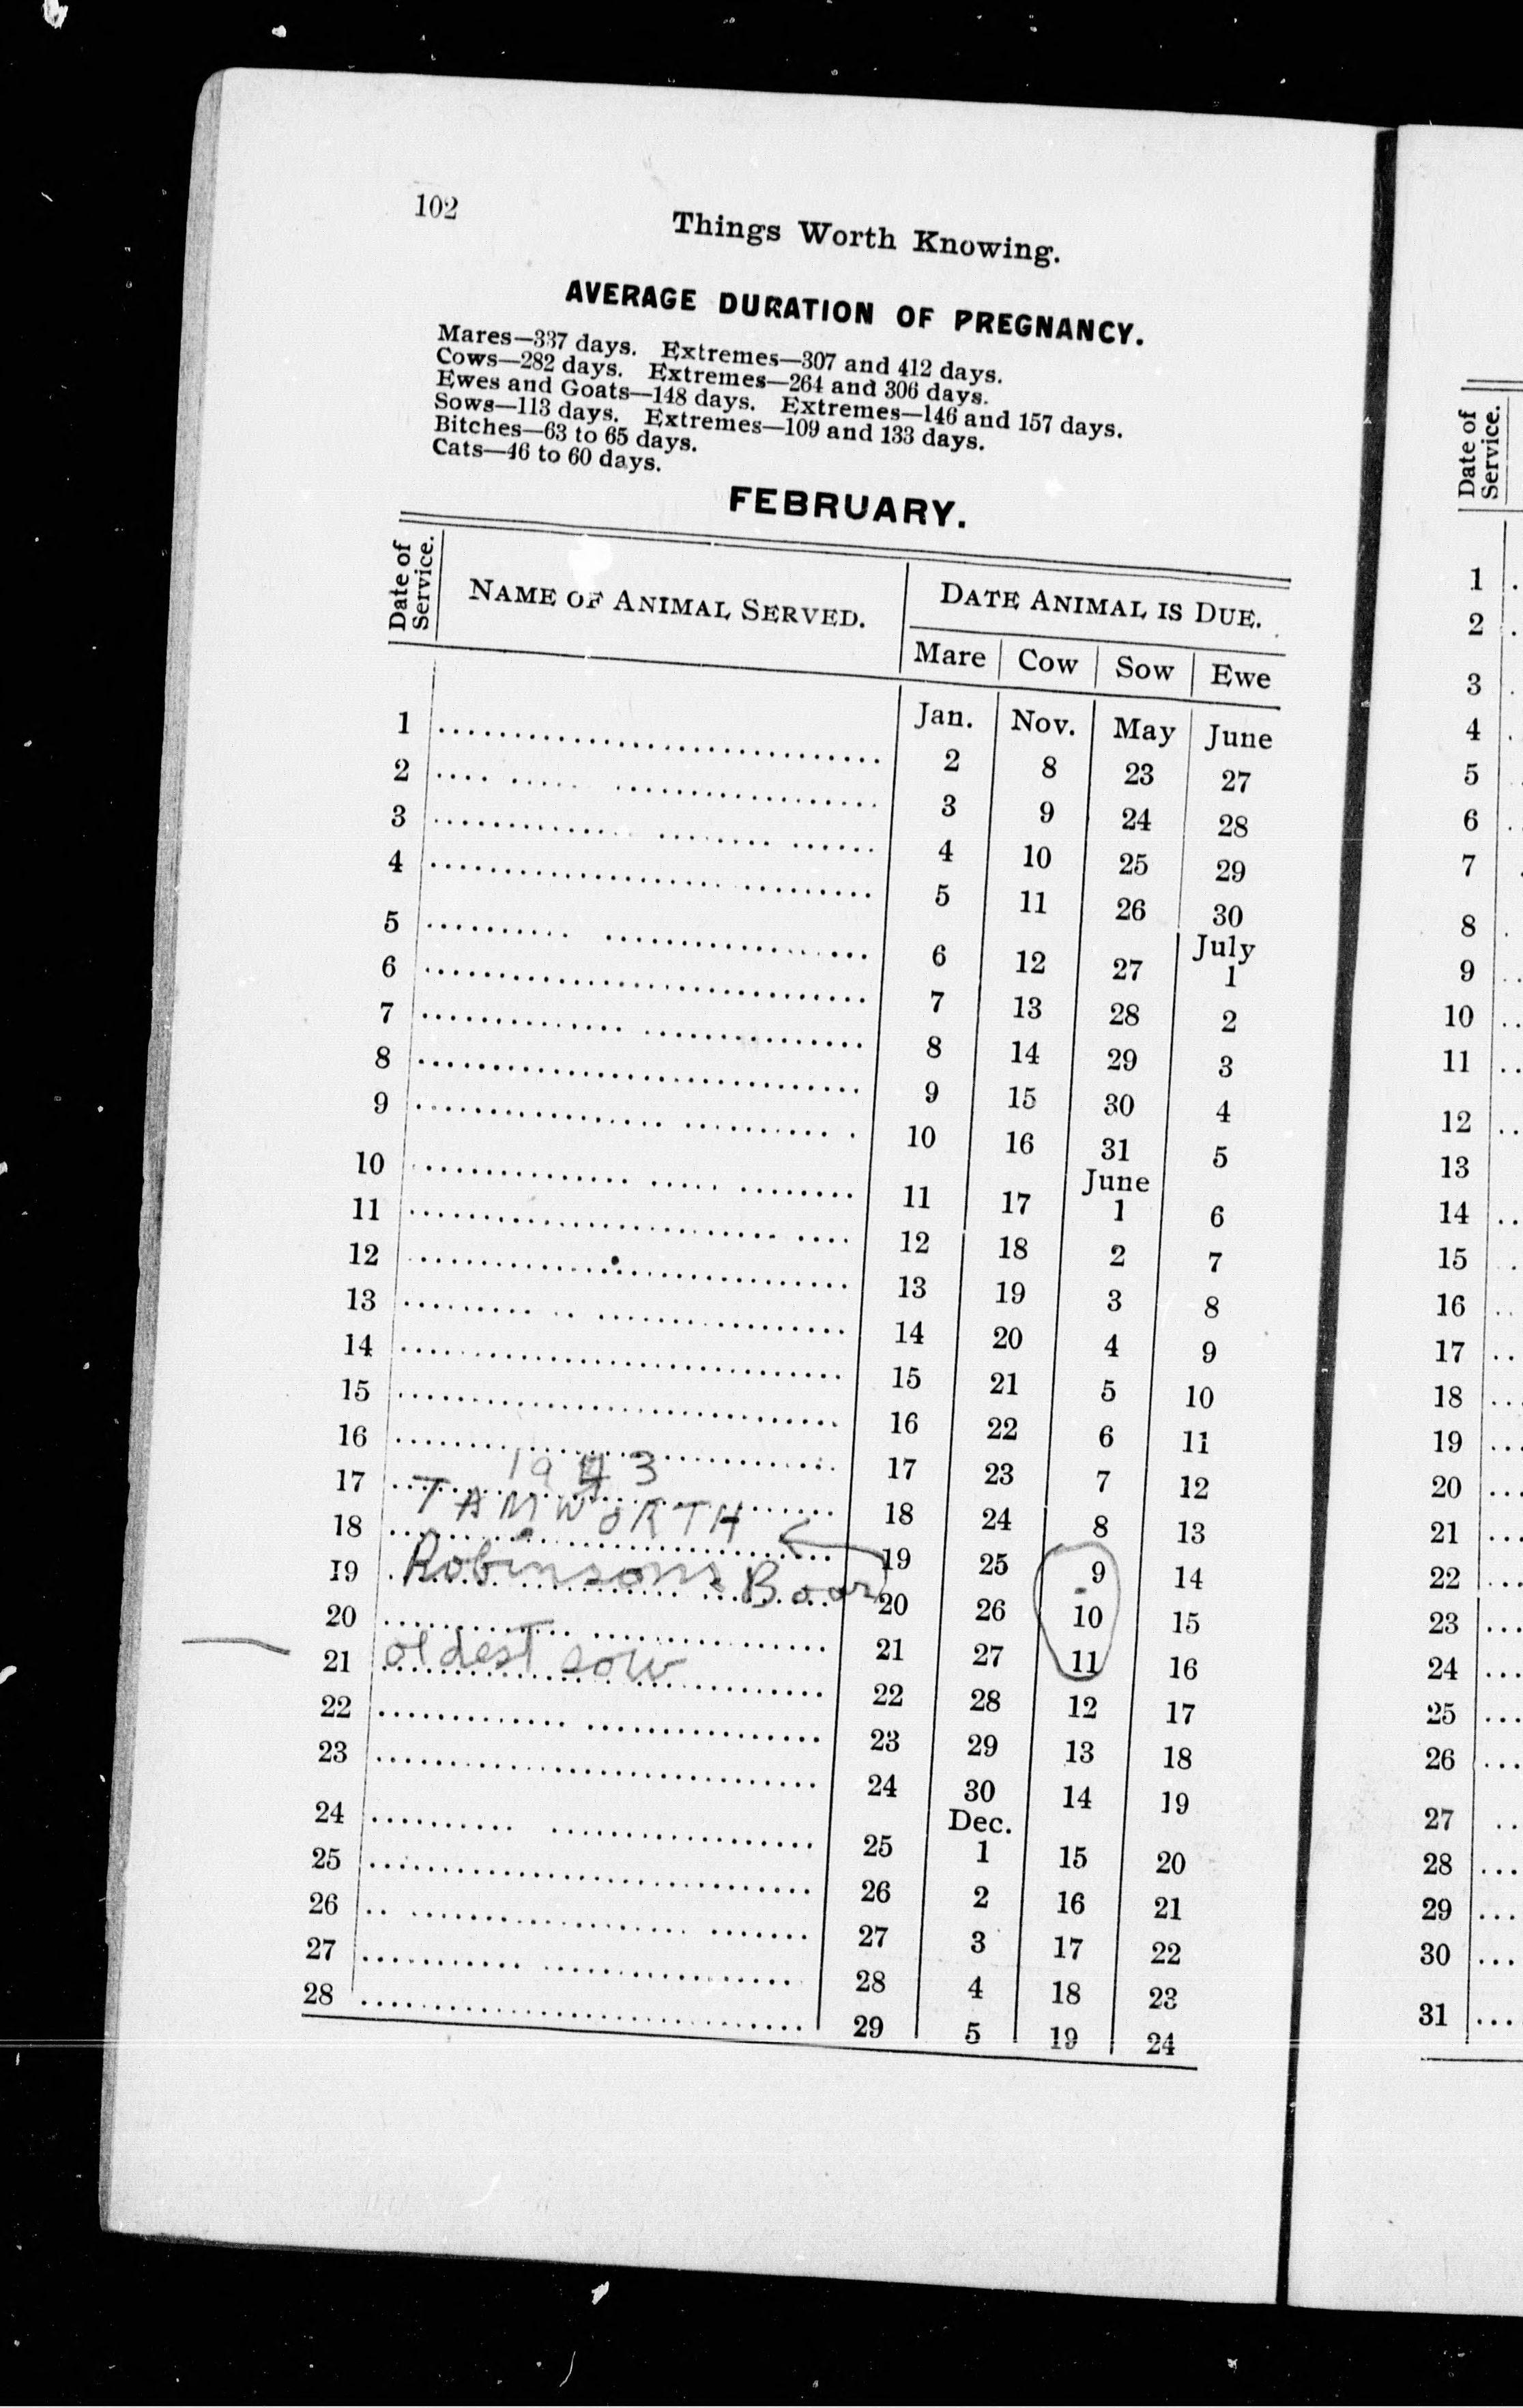 102
Things Worth Knowing.
AVERAGE DURATION OF PREGNANCY.
Mares—337 days. Extremes—307 and 412 days.
Cows—282 days. Extremes—264 and 306 days.
Ewes and Goats—148 days. Extremes—146 and 157 days.
Sows—113 days. Extremes—109 and 133 days.
Bitches—63 to 65 days.
Cats—46 to 60 days.
FEBRUARY.
Date of Service. NAME OF ANIMAL SERVED. DATE ANIMAL IS DUE.
Mare Cow Sow Ewe
Jan. Nov. May June
1 2 8 23 27
2 3 9 24 28
3 4 10 25 29
4 5 11 26 30
July
5 6 12 27 1
6 7 13 28 2
7 8 14 29 3
8 9 15 30 4
9 10 16 31 5
June
10 11 17 1 6
11 12 18 2 7
12 13 19 3 8
13 14 20 4 9
14 15 21 5 10
15 16 22 6 11
16 17 23 7 12
1943
17 TAMWORTH 18 24 8 13
18 19 25 9 14
19 Robinsons Boar 20 26 10 15
20 21 27 11 16
21 oldest sow 22 28 12 17
22 23 29 13 18
23 24 30 14 19
Dec.
24 25 1 15 20
25 26 2 16 21
26 27 3 17 22
27 28 4 18 23
28 29 5 19 24
Date of Service.
1
2
3
4
5
6
7
8
9
10
11
12
13
14
15
16
17
18
19
20
21
22
23
24
25
26
27
28
29
30
31